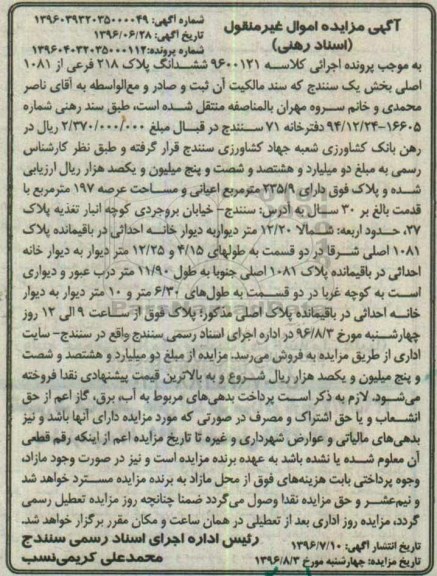 آگهی مزایده اموال غیرمنقول
(اسناد رهنی)
شماره آگهی: ۱۳۹۶۰۳۹۳۲۰۳۵۰۰۰۰۴۹
تاریخ آگهی: ۱۳۹۶/۰۶/۲۸
شماره پرونده: ۱۳۹۶۰۴۰۳۲۰۳۵۰۰۰۱۱۲
به موجب پرونده اجرائی کلاسه ۹۶۰۰۱۲۱ ششدانگ پلاک ۲۱۸ فرعی از ۱۰۸۱
اصلی بخش یک سنندج که سند مالکیت آن ثبت و صادر و مع‌الواسطه به آقای ناصر
محمدی و خانم سروه مهران بالمناصفه منتقل شده است، طبق سند رهنی شماره
۱۶۶۰۵-۹۴/۱۲/۲۴ دفترخانه ۷۱ سنندج در قبال مبلغ ۲/۳۷۰/۰۰۰/۰۰۰ ریال در
رهن بانک کشاورزی شعبه جهاد کشاورزی سنندج قرار گرفته و طبق نظر کارشناس
رسمی به مبلغ دو میلیارد و هشتصد و شصت و پنج میلیون و یکصد هزار ریال ارزیابی
شده و پلاک فوق دارای ۲۳۵/۹ مترمربع اعیانی و مساحت عرصه ۱۹۷ مترمربع با
قدمت بالغ بر ۳۰ سال به آدرس: سنندج- خیابان بروجردی کوچه انبار تغذیه پلاک
۲۷، حدود اربعه: شمالا ۱۲/۲۰ متر دیوار به دیوار خانه احداثی در باقیمانده پلاک
۱۰۸۱ اصلی شرقا در دو قسمت به طولهای ۴/۱۵ و ۱۲/۲۵ متر دیوار به دیوار خانه
احداثی در باقیمانده پلاک ۱۰۸۱ اصلی جنوبا به طول ۱۱/۹۰ متر درب عبور و دیواری
است به کوچه غربا در دو قسمت به طول‌های ۶/۳۰ متر و ۱۰ متر دیوار به دیوار
خانه احداثی در باقیمانده پلاک اصلی مذکور؛ پلاک فوق از ساعت ۹ الی ۱۲ روز
چهارشنبه مورخ ۹۶/۸/۳ در اداره اجرای اسناد رسمی سنندج واقع در سنندج- سایت
اداری از طریق مزایده به فروش می‌رسد. مزایده از مبلغ دو میلیارد و هشتصد و شصت
و پنج میلیون و یکصد هزار ریال شروع و به بالاترین قیمت پیشنهادی نقدا فروخته
می‌شود. لازم به ذکر است پرداخت بدهی‌های مربوط به آب، برق، گاز اعم از حق
انشعاب و یا حق اشتراک و مصرف در صورتی که مورد مزایده دارای آنها باشد و نیز
بدهی‌های مالیاتی و عوارض شهرداری و غیره تا تاریخ مزایده اعم از اینکه رقم قطعی
آن معلوم شده یا نشده باشد به عهده برنده مزایده است و نیز در صورت وجود مازاد،
وجوه پرداختی بابت هزینه‌های فوق از محل مازاد به برنده مزایده مسترد خواهد شد
و نیم‌عشر و حق مزایده نقدا وصول می‌گردد ضمنا چنانچه روز مزایده تعطیل رسمی
گردد، مزایده روز اداری بعد از تعطیلی در همان ساعت و مکان مقرر برگزار خواهد شد.
تاریخ انتشار آگهی: ۱۳۹۶/۷/۱۰
تاریخ مزایده: چهارشنبه مورخ ۱۳۹۶/۸/۳
رئیس اداره اجرای اسناد رسمی سنندج
محمدعلی کریمی‌نسب